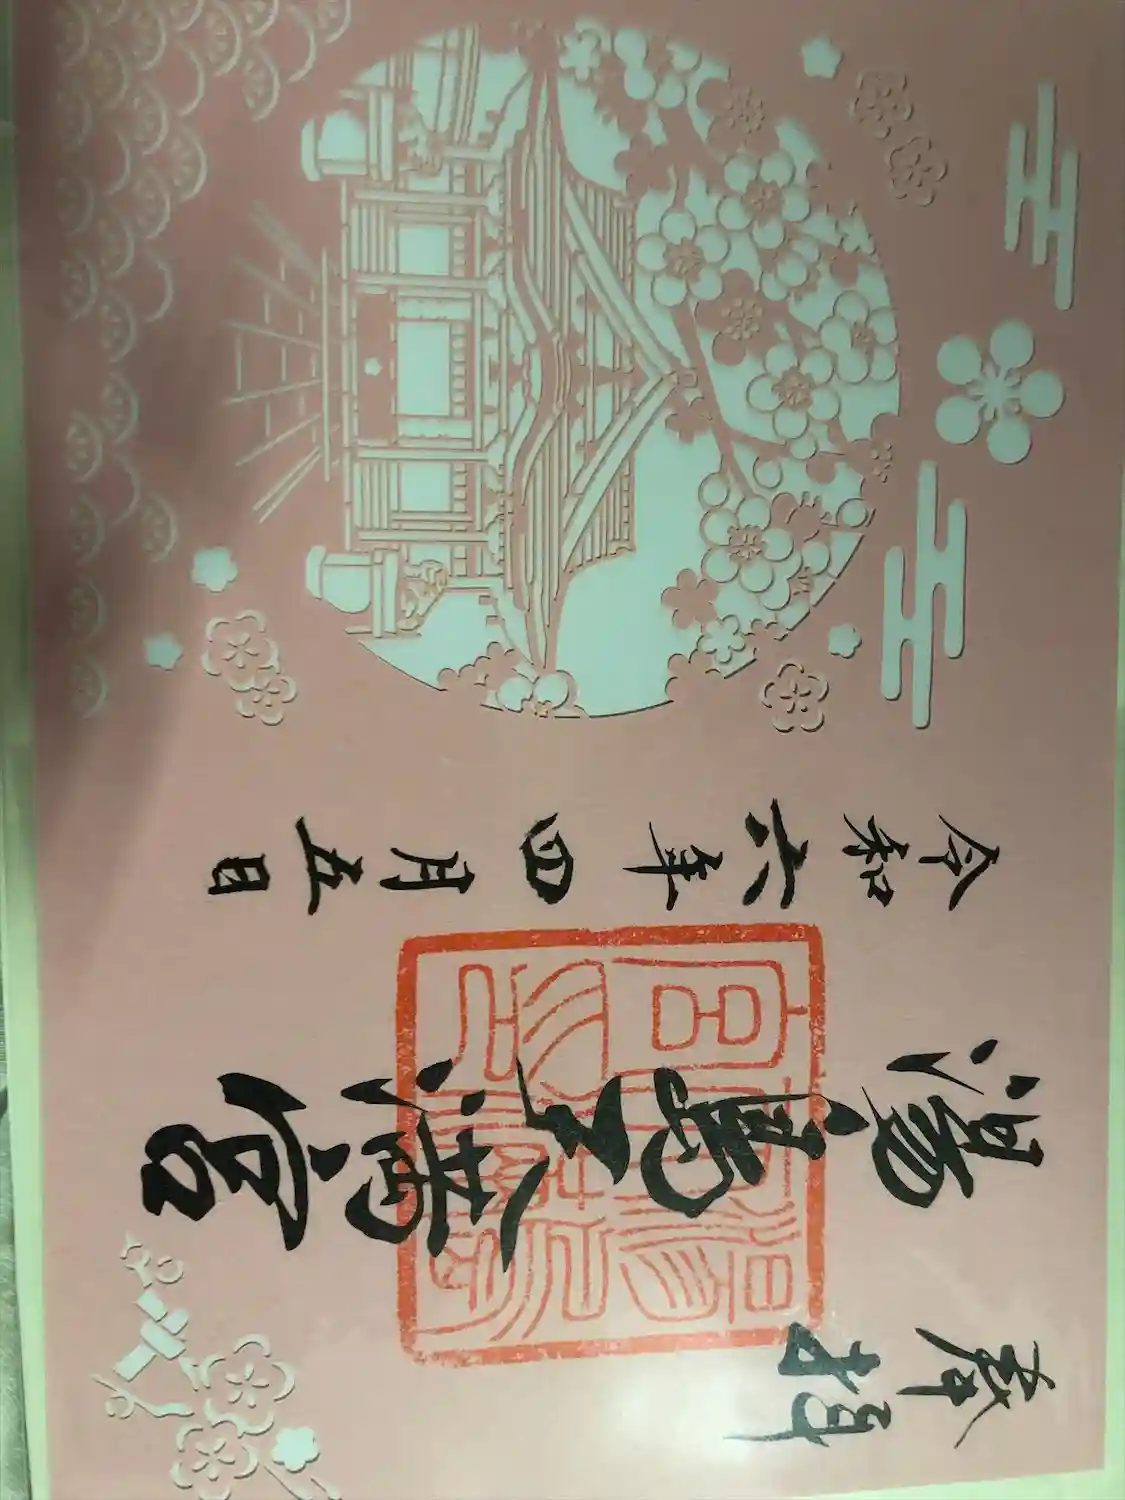 奉拝
湯島天満宮
令和六年四月五日